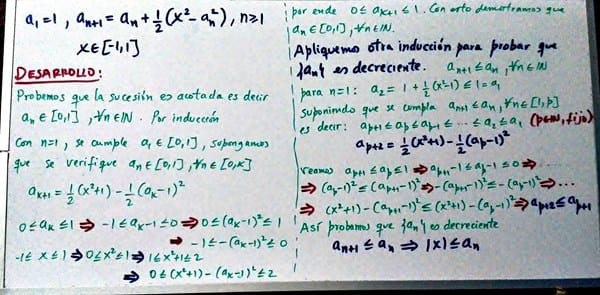 a₁=1, aₙ₊₁ = aₙ + ½(x² - aₙ²), n≥1
x∈[-1,1]
DESARROLLO:
Probemos que la sucesión es acotada es decir
aₙ ∈ [0,1], ∀n∈ℕ. Por inducción
Con n=1, se cumple a₁ ∈ [0,1], supongamos
que se verifique aₙ∈[0,1], ∀n∈[0,K]
aₖ₊₁ = ½(x²+1) - ½(aₖ-1)²
0≤aₖ≤1 ⇒ -1≤aₖ-1≤0 ⇒ 0≤(aₖ-1)²≤1
⇒ -1≤-(aₖ-1)²≤0
-1≤x≤1 ⇒ 0≤x²≤1 ⇒ 1≤x²+1≤2
⇒ 0≤(x²+1)-(aₖ-1)²≤2
por ende 0≤aₖ₊₁≤1. Con esto demostramos que
aₙ∈[0,1], ∀n∈ℕ.
Apliquemos otra inducción para probar que
{aₙ} es decreciente. aₙ₊₁≤aₙ, ∀n∈ℕ
para n=1: a₂ = 1+½(x²-1)≤1=a₁
suponiendo que se cumpla aₙ₊₁≤aₙ, ∀n∈[1,p]
es decir: aₚ₊₁≤aₚ≤aₚ₋₁≤...≤a₂≤a₁ (p∈ℕ, fijo)
aₚ₊₂=½(x²+1)-½(aₚ-1)²
veamos aₚ₊₁≤aₚ≤1 ⇒ aₚ₊₁-1≤aₚ-1≤0 ⇒ ...
⇒ (aₚ-1)²≤(aₚ₊₁-1)² ⇒ -(aₚ₊₁-1)²≤-(aₚ-1)² ⇒ ...
⇒ (x²+1)-(aₚ₊₁-1)²≤(x²+1)-(aₚ-1)² ⇒ aₚ₊₂≤aₚ₊₁
Así probamos que {aₙ} es decreciente
aₙ₊₁≤aₙ ⇒ |x|≤aₙ